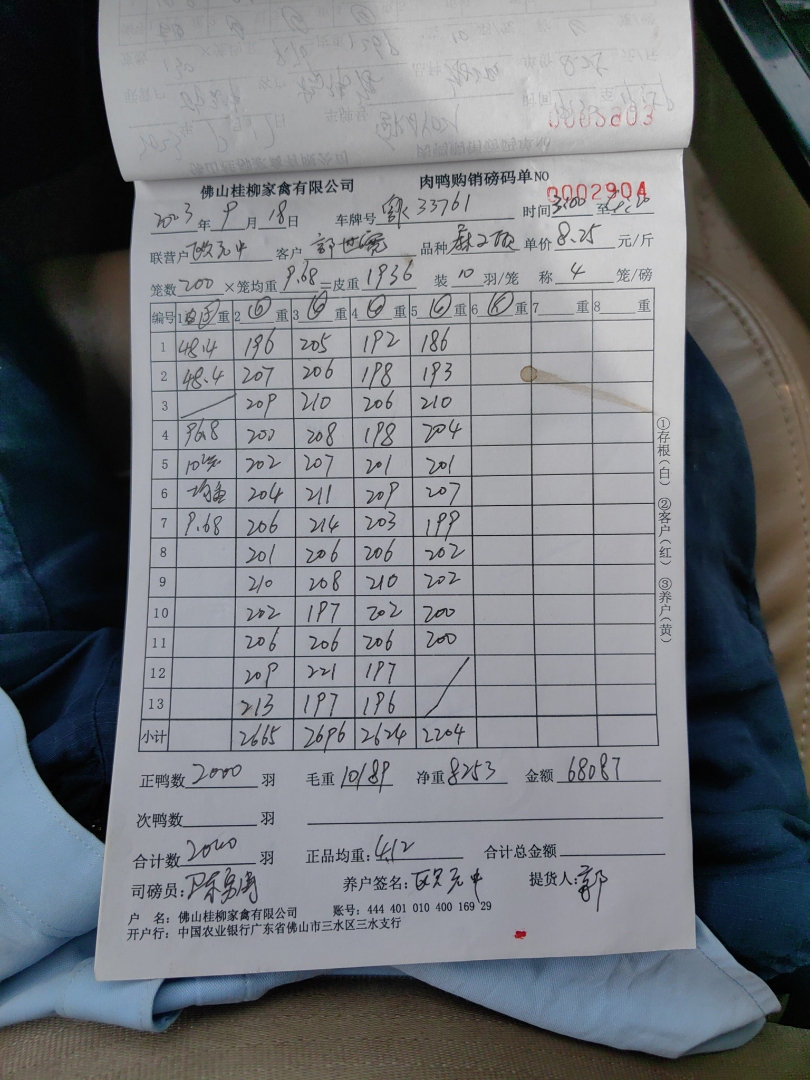 0003603
佛山桂柳家禽有限公司 肉鸭购销磅码单 NO 0002904
2023年9月18日 车牌号 33761 时间 3:00 至
联营户 欧元中 客户 郭世宽 品种 单价 8.25 元/斤
笼数 200 ×笼均重 9.68 =皮重 1936 装 10 羽/笼 称 4 笼/磅
编号 1 重 2 重 3 重 4 重 5 重 6 重 7 重 8 重
1 48.4 196 205 192 186
2 48.4 207 206 198 193
3 ／ 209 210 206 210
4 96.8 200 208 198 204
5 10笼 202 207 201 201
6 均重 204 211 209 207
7 9.68 206 214 203 199
8 201 206 206 202
9 210 208 210 202
10 202 197 202 200
11 206 206 206 200
12 209 221 197 ／
13 213 197 196
小计 2665 2696 2624 2204
正鸭数 2000 羽 毛重 10189 净重 8253 金额 68087
次鸭数 羽
合计数 2000 羽 正品均重: 4.12 合计总金额
司磅员: 养户签名: 欧元中 提货人: 郭
户 名: 佛山桂柳家禽有限公司 账号: 444 401 010 400 169 29
开户行: 中国农业银行广东省佛山市三水区三水支行
①存根(白) ②客户(红) ③养户(黄)